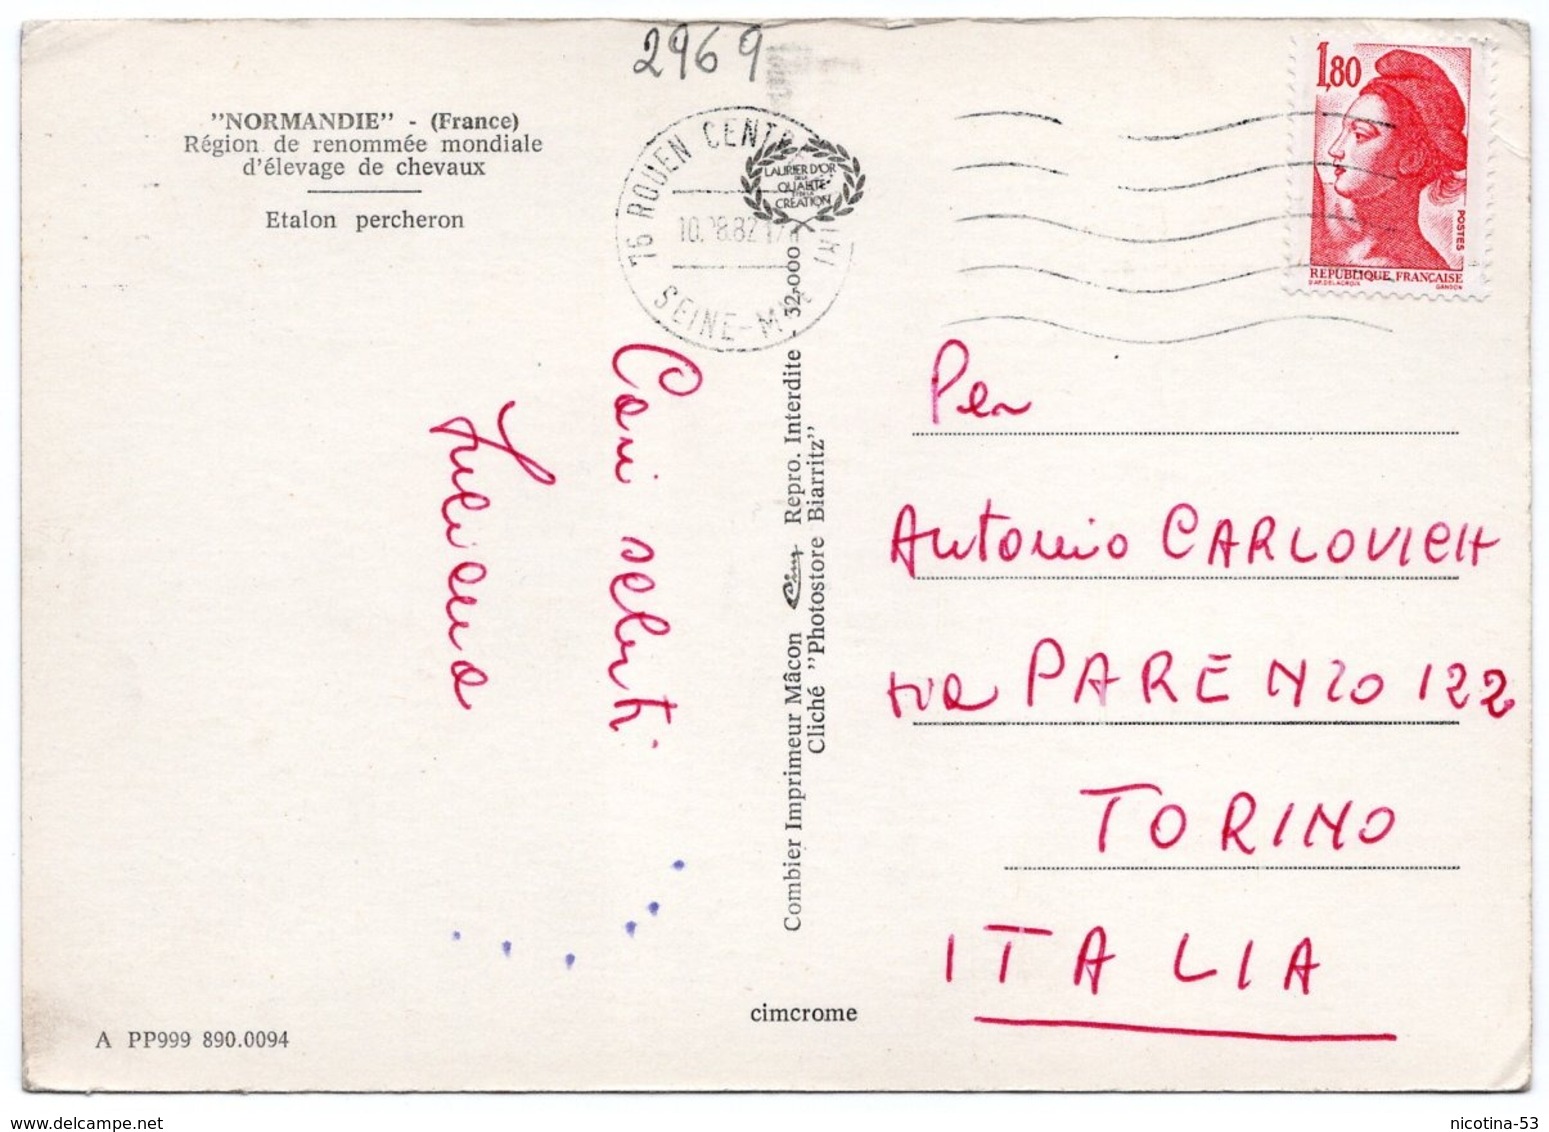 2969
"NORMANDIE" - (France)
Région de renommée mondiale
d'élevage de chevaux
Etalon percheron
76 ROUEN CENTR
SEINE-M
LAURIER D'OR
DE LA
QUALITÉ
CRÉATION
1,80
POSTES
REPUBLIQUE FRANÇAISE
D'AP. DELACROIX
GANDON
Cari saluti
Combier Imprimeur Mâcon Cim Repro. Interdite - 32.000
Cliché "Photostore Biarritz"
Per
Antonio CARLOVICH
via PARENZO 122
TORINO
ITALIA
cimcrome
A PP999 890.0094
nicotina-53